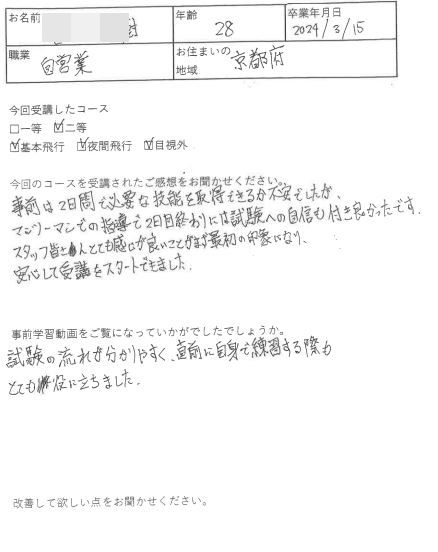 お名前
年齢
28
卒業年月日
2024/3/15
職業
自営業
お住まいの
地域
京都府
今回受講したコース
□一等 ☑二等
☑基本飛行 ☑夜間飛行 ☑目視外
今回のコースを受講されたご感想をお聞かせください。
事前は2日間で必要な技能を取得できるか不安でしたが、
マンツーマンでの指導で2日目終わりには試験への自信も付き良かったです。
スタッフ皆さんとても感じが良いことがまず最初の印象になり、
安心して受講をスタートできました。
事前学習動画をご覧になっていかがでしたでしょうか。
試験の流れも分かりやすく、直前に自身で練習する際も
とても役に立ちました。
改善して欲しい点をお聞かせください。